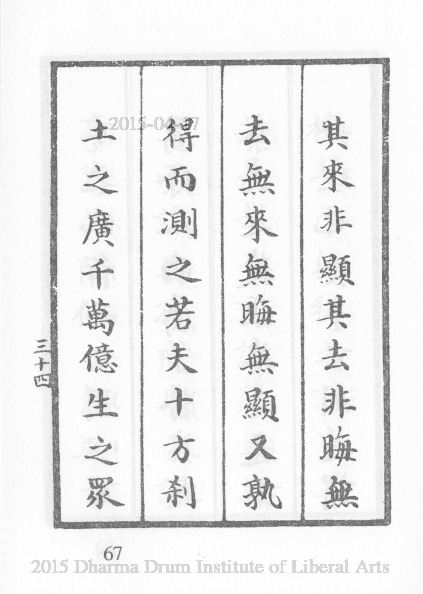 其來非顯其去非晦無
去無來無晦無顯又孰
得而測之若夫十方刹
土之廣千萬億生之眾
三十四
67
2015-04-17
2015 Dharma Drum Institute of Liberal Arts